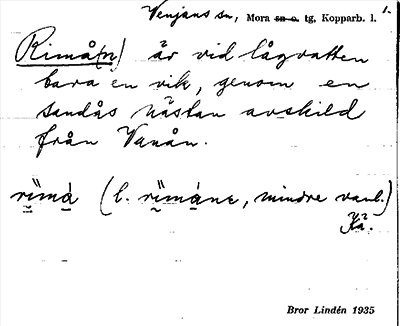 Venjans sn, Mora sn o. tg, Kopparb. l. 1.
Rimå(n) är vid lågvatten
bara en vik, genom en
sandås nästan avskild
från Vanån.
rimá (l. rimáne, mindre vanl.)
Kä.
Bror Lindén 1935